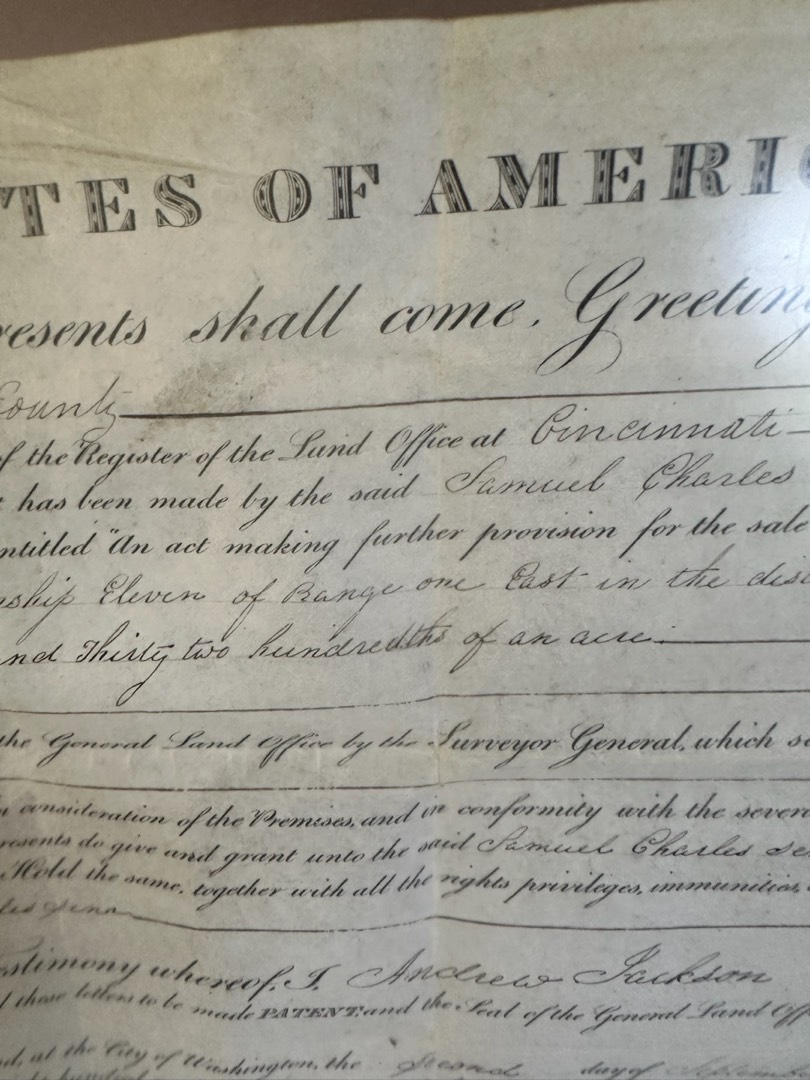 TES OF AMERIC
resents shall come, Greeting
County
of the Register of the Land Office at Cincinnati
t has been made by the said Samuel Charles
ntitled "An act making further provision for the sale
ship Eleven of Range one East in the dist
nd Thirty two hundredths of an acre.
the General Land Office by the Surveyor General, which sa
n consideration of the Premises, and in conformity with the severa
resents do give and grant unto the said Samuel Charles se
Hold the same, together with all the rights privileges, immunities,
les Senn
estimony whereof, I, Andrew Jackson
these letters to be made PATENT and the Seal of the General Land Off
nd, at the City of Washington, the Second day of Septembe
hundred